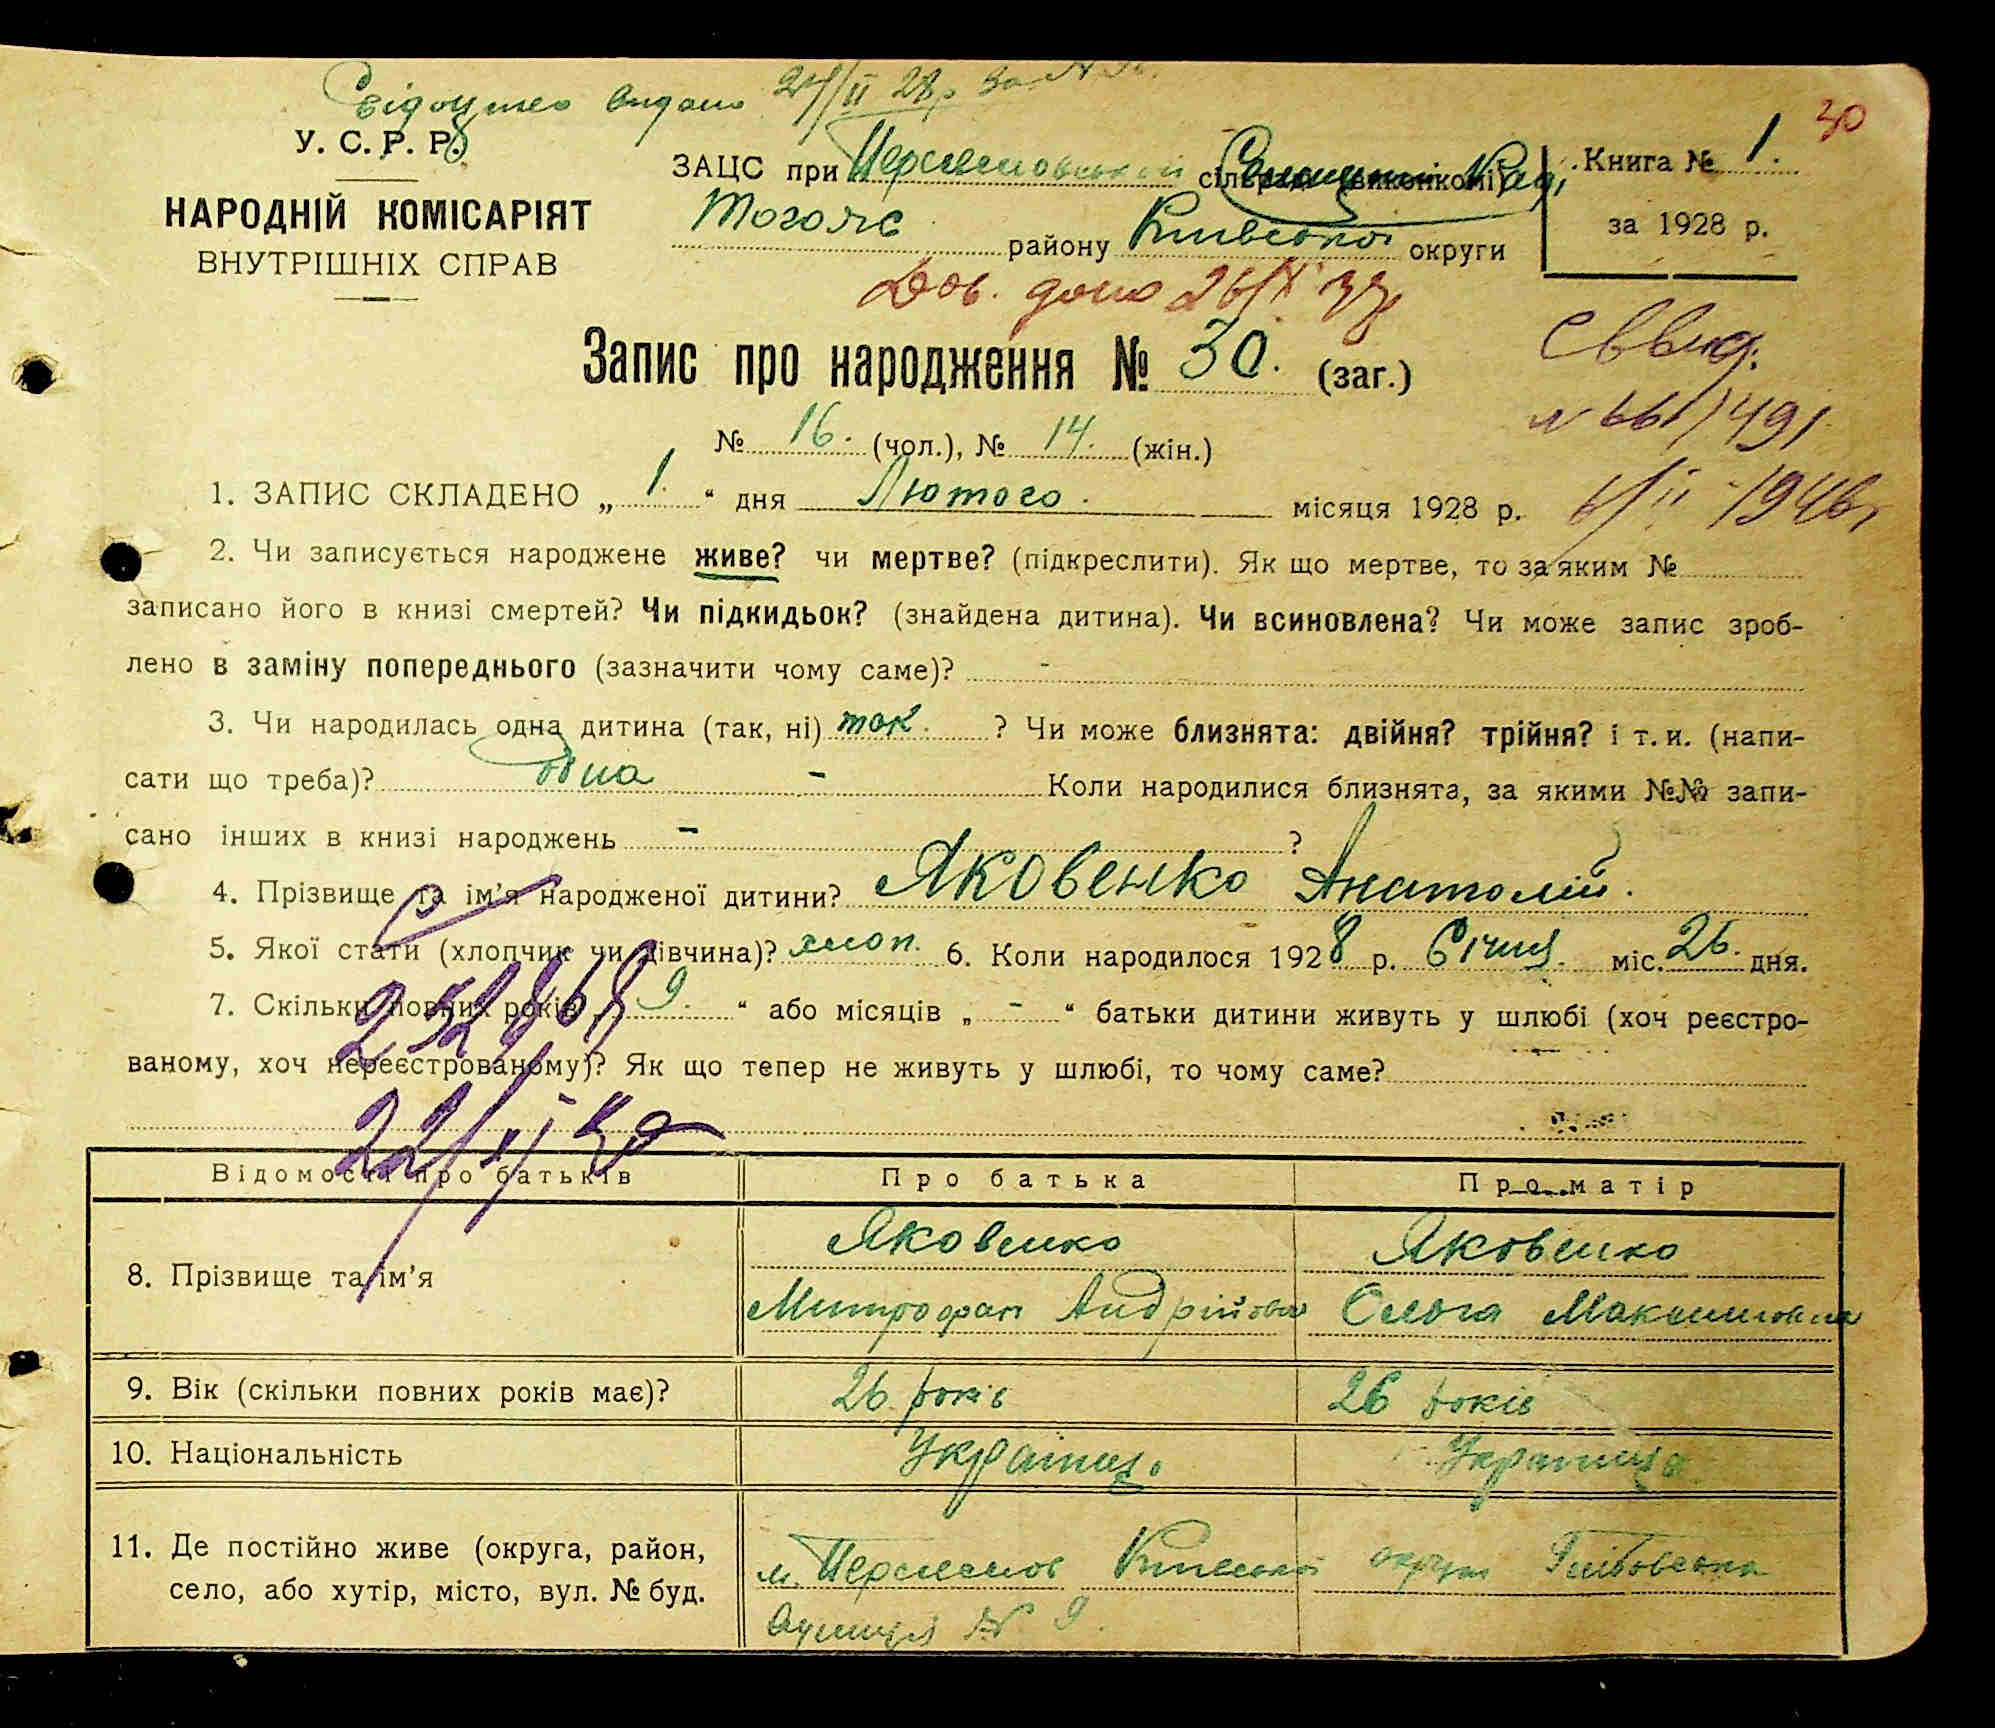 Свідоцтво видано 24/II 28 р. за №
30
У. С. Р. Р.
НАРОДНІЙ КОМІСАРІЯТ
ВНУТРІШНІХ СПРАВ
ЗАЦС при сільраді (виконкомі)
Тогож району Київської округи
Книга № 1.
за 1928 р.
Дов. дано 26/X
Запис про народження № 30. (заг.)
№ 16. (чол.), № 14. (жін.)
1. ЗАПИС СКЛАДЕНО „ 1 “ дня Лютого. місяця 1928 р.
2. Чи записується народжене живе? чи мертве? (підкреслити). Як що мертве, то за яким №
записано його в книзі смертей? Чи підкидьок? (знайдена дитина). Чи всиновлена? Чи може запис зроб-
лено в заміну попереднього (зазначити чому саме)? -
3. Чи народилась одна дитина (так, ні) так. ? Чи може близнята: двійня? трійня? і т. и. (напи-
сати що треба)? одна - Коли народилися близнята, за якими №№ запи-
сано інших в книзі народжень - ?
4. Прізвище та ім’я народженої дитини? Яковенко Анатолій.
5. Якої стати (хлопчик чи дівчина)? хлоп. 6. Коли народилося 1928 р. Січня міс. 26. дня.
7. Скільки повних років „ 9. “ або місяців „ - “ батьки дитини живуть у шлюбі (хоч реєстро-
ваному, хоч нереєстрованому)? Як що тепер не живуть у шлюбі, то чому саме?
Відомості про батьків Про батька Про матір
8. Прізвище та ім’я Яковенко Митрофан Андрійович Яковенко Ольга Максимовна
9. Вік (скільки повних років має)? 26 років 26 років
10. Національність Українець. Українка
11. Де постійно живе (округа, район,
село, або хутір, місто, вул. № буд.
м. Київської округи
вулиця № 9.